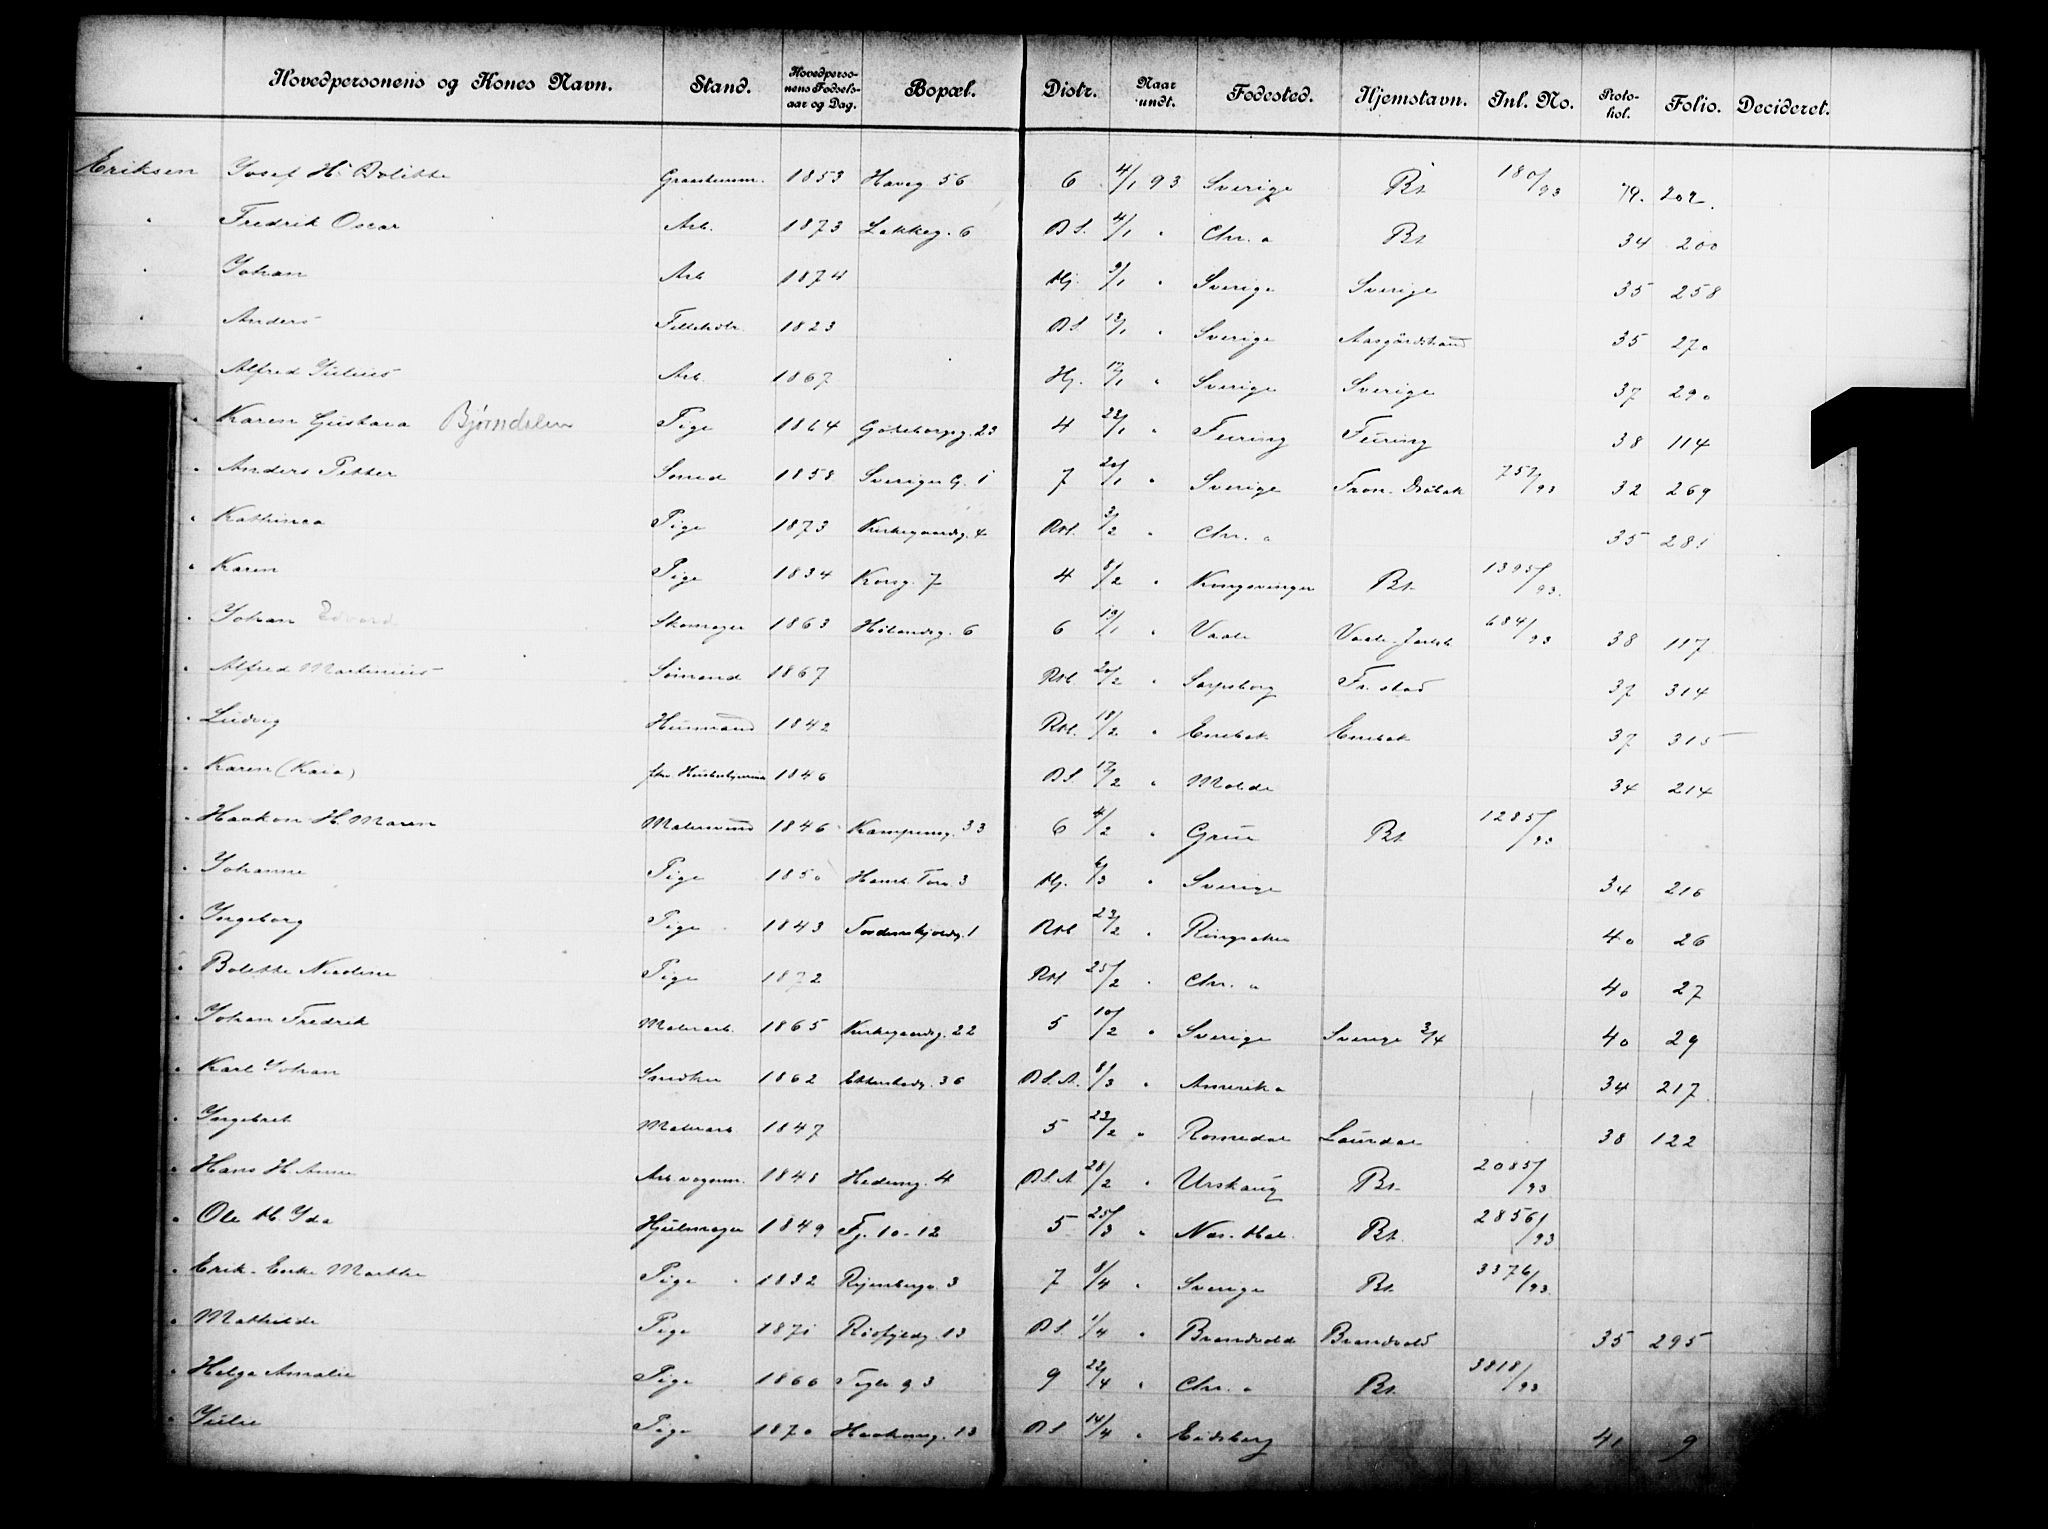 Hovedpersonens og Kones Navn. Stand. Hovedpersonens Fødselsaar og Dag. Bopæl. Distr. Naar undt. Fødested. Hjemstavn. Inl. No. Protokol. Folio. Decideret.
Eriksen Josef H. Bolette 1853 Haveg 56 6 4/1 93 Sverige Bt 180/93 79. 202.
" Fredrik Oscar Arb. 1873 Lakkeg. 6 B.S. 4/1 " Chr.a Bt 34 200
" Johan Arb 1874 Hj. 9/1 " Sverige Sverige 35 258
" Anders 1823 B.S. 13/1 " Sverige Aasgårdstrand 35 270
" Alfred Julius Arb. 1867 Hj. 17/1 " Sverige Sverige 37 290
" Karen Gustava Bjørndalen Pige 1864 Gøteborgg. 23 4 22/1 " Feiring Feiring 38 114
" Anders Petter Smed 1858 Sveriges G. 1 7 20/1 " Sverige Drøbak 757/93 32 269
" Kathinca Pige 1873 Kirkegaardsg. 4 Rbl. 3/2 " Chr.a 35 281
" Karen Pige 1834 Korsg. 7 4 8/2 " Kongsvinger Bt. 1395/93.
" Johan Edvard Skomager 1863 Hølandsg. 6 6 19/1 " Vaale Vaale Jarlsb 684/93 38 117
" Alfred Martinius Sømand 1867 Rbl. 20/2 " Sarpsborg Fr.stad 37 314
" Ludvig Husmand 1842 Rbl. 18/2 " Enebak Enebak 37 315
" Karen (Kaia) 1846 B.S. 17/2 " Molde 34 214
" Haakon H. Maren Matersvend 1846 Kampeng. 33 6 4/2 " Grue Bt 1285/93
" Johanne Pige 1850 Hamb. Torv. 3 Hj. 6/3 " Sverige 34 216
" Ingeborg Pige 1843 Tordenskjoldsg. 1 Rbl 23/2 " Ringsaker 40 26
" Bolette Nicoline Pige 1872 Rbl 25/2 " Chr.a 40 27
" Johan Fredrik Malerarb. 1865 Kirkegaardsg. 22 5 10/2 " Sverige Sverige 3/4 40 29
" Karl Johan Snedker 1862 Ekkerbedg. 36 B.S.A. 8/3 " Amerika 34 217
" Ingebret Malerarb. 1847 5 23/2 " Romedal Laurdal 38 122
" Hans H. Anne Arb. vognm. 1848 Hedemg. 4 B.S.A 28/2 " Urskaug Bt. 2085/93
" Ole H. Ida Hjulmager 1849 Tj. 10-12 5 25/3 " Nas. Hed. Bt. 2856/93
" Erik. Enke Marthe Pige 1832 Rijenbergv. 3 7 8/4 " Sverige Bt. 3376/93
" Mathilde Pige 1871 Risfjeldg. 13 B.S. 1/4 " Brandvold Brandvold 35 295
" Helga Amalie Pige 1866 Teglv. g. 3 9 22/4 " Chr.a Bt. 3818/93
" Julie Pige 1870 Haakonsg. 13 B.S 14/4 " Eidsberg 41 9